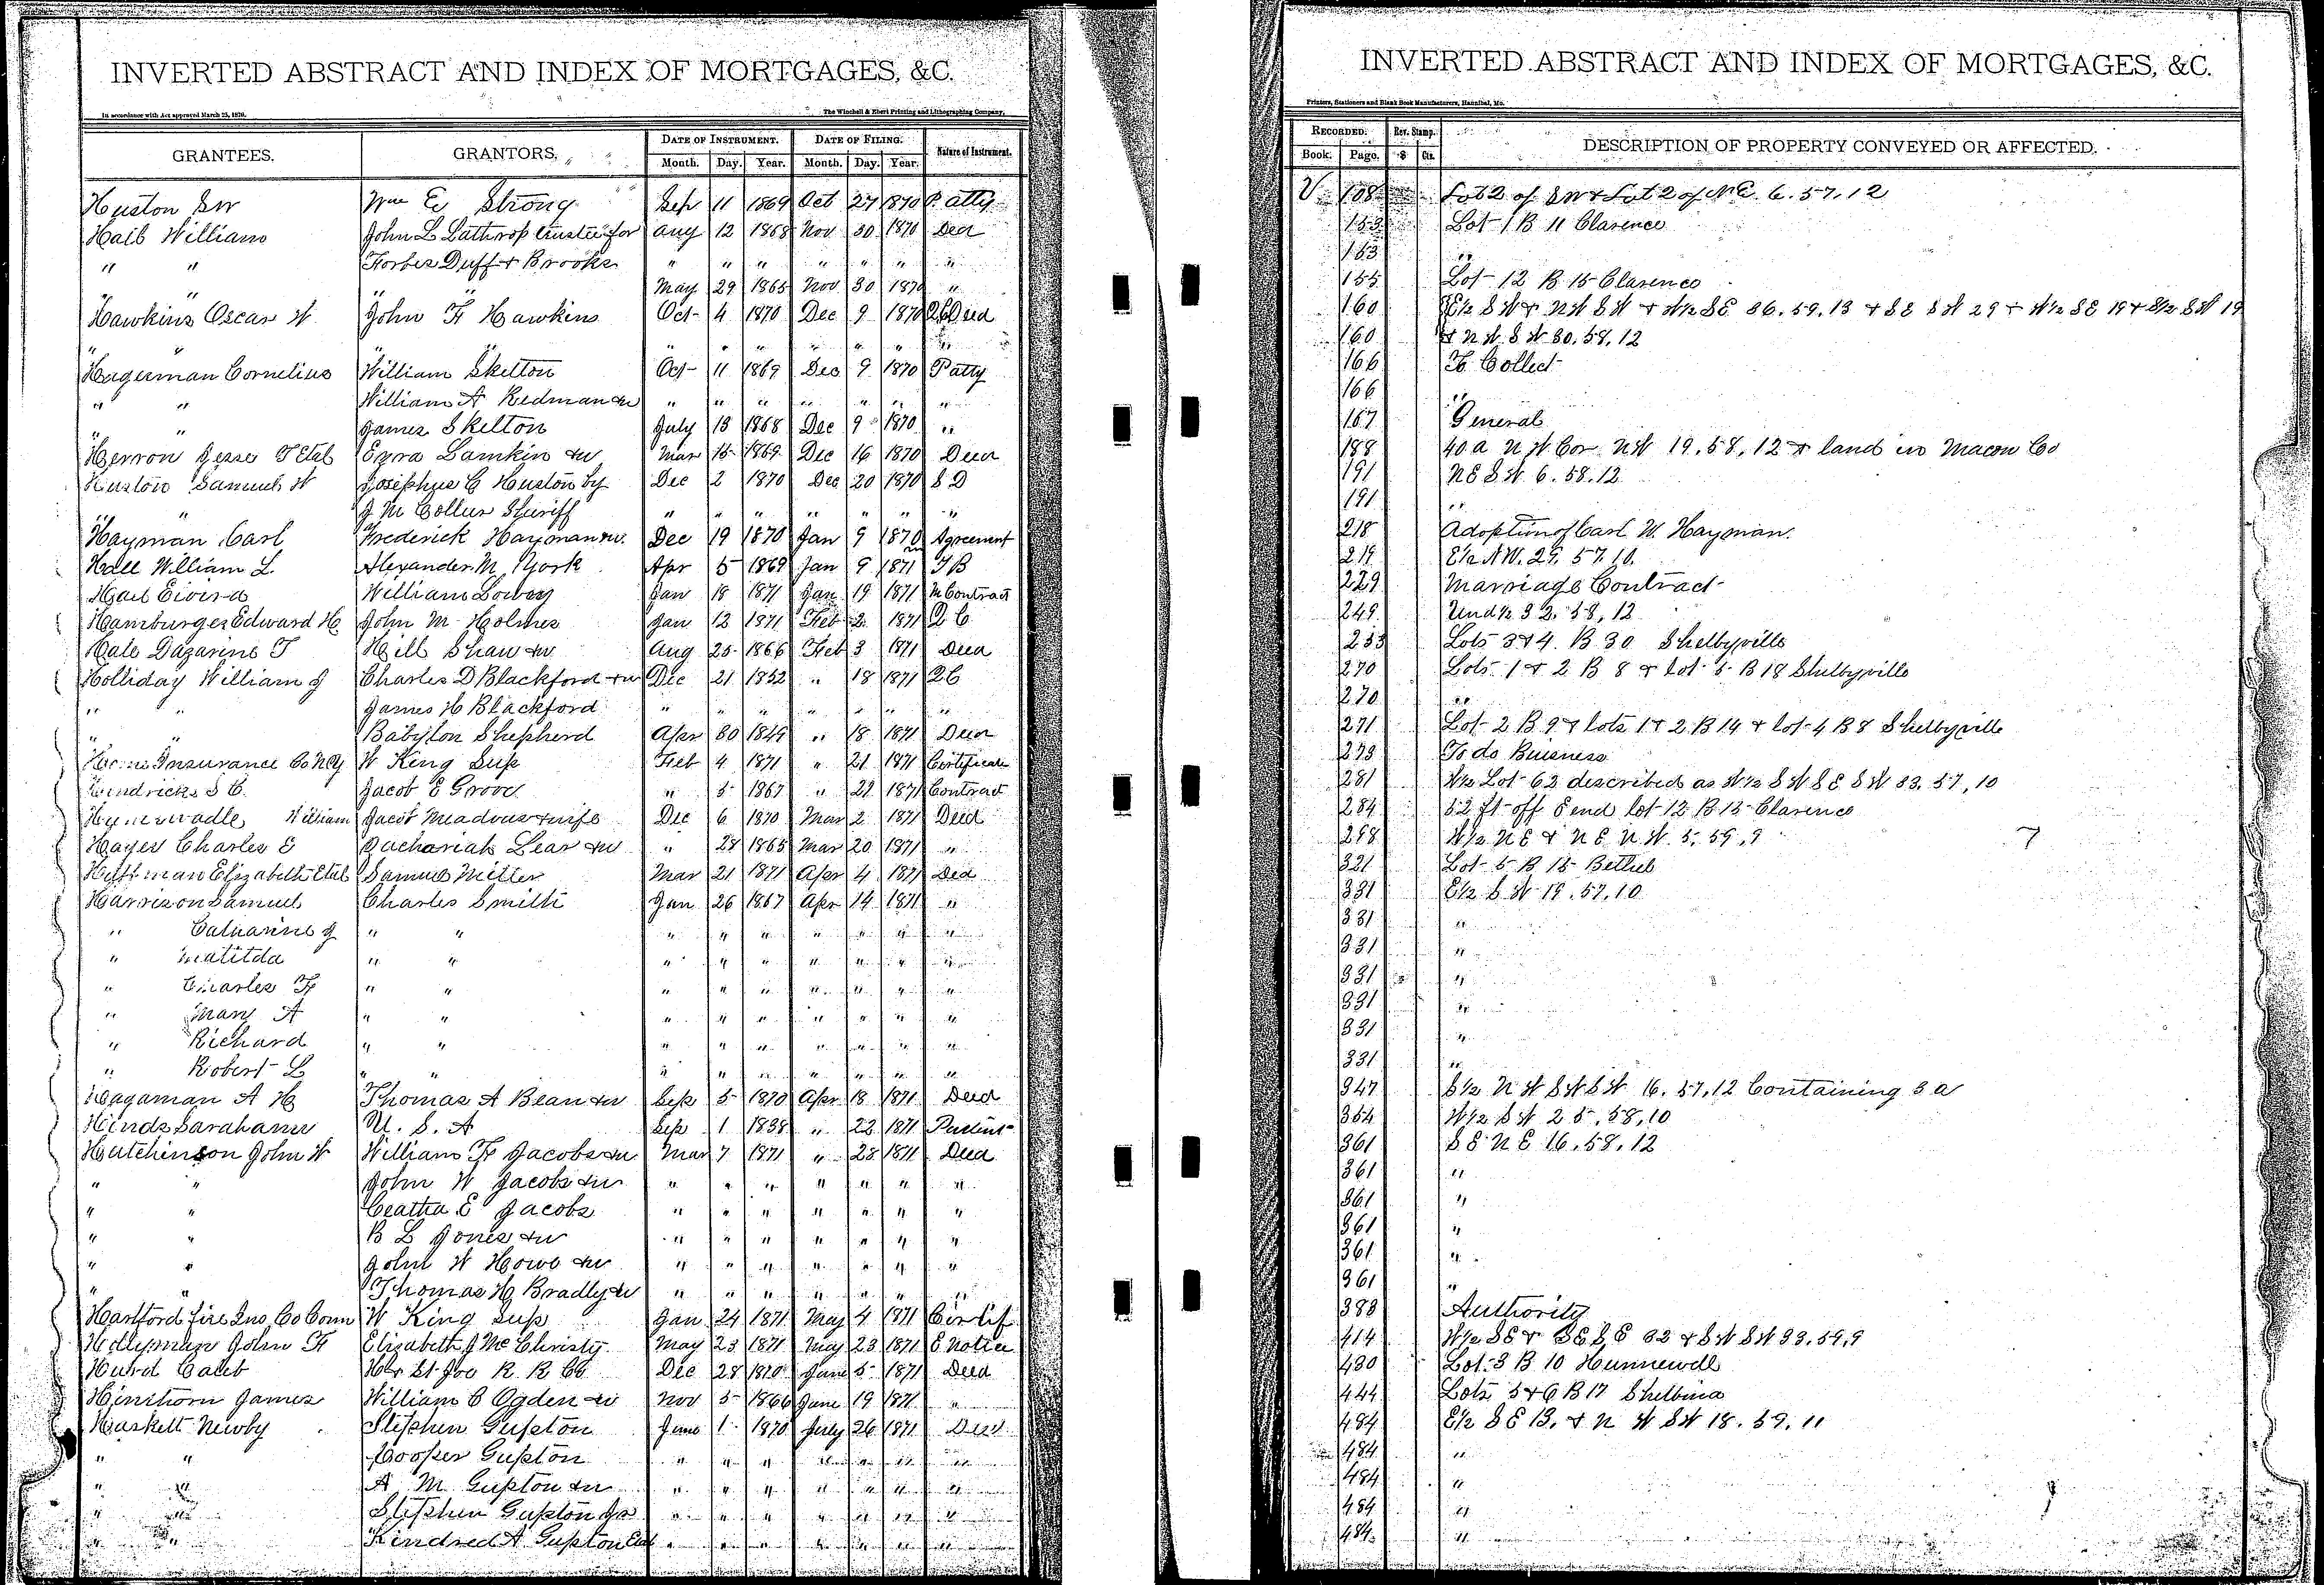 INVERTED ABSTRACT AND INDEX OF MORTGAGES, &C.
In accordance with Act approved March 25, 1870.
The Winchell & Ebert Printing and Lithographing Company,
GRANTEES. GRANTORS. DATE OF INSTRUMENT. DATE OF FILING. Nature of Instrument.
Month. Day. Year. Month. Day. Year.
Huston SW Wm E Strong Sep 11 1869 Oct 27 1870 P. Atty
Hail William John L Lathrop trustee for Aug 12 1868 Nov 30 1870 Deed
" " Forbes Duff & Brooks " " " " " " "
" " " " May 29 1865 Nov 30 1870 "
Hawkins Oscar W John F Hawkins Oct 4 1870 Dec 9 1870 QC Deed
" " " " " " " " "
Hagerman Cornelius William Skelton Oct 11 1869 Dec 9 1870 P atty
" " William A Redman &w " " " " " " "
" " James Skelton July 13 1868 Dec 9 1870 "
Herron Jesse T Etal Ezra Lamkin &w Mar 15 1869 Dec 16 1870 Deed
Huston Samuel W Josephus C Huston by Dec 2 1870 Dec 20 1870 S D
" J M Collier Sheriff " " " " " " "
Hayman Carl Frederick Hayman &w. Dec 19 1870 Jan 9 1870 Agreement
Hall William L. Alexander M. York Apr 5 1869 Jan 9 1871 T B
Hail William Lowry Jan 18 1871 Jan 19 1871 M Contract
Hamburger Edward H John M Holmes Jan 12 1871 Feb 2 1871 Q C
Hale Dazarine T Hill Shaw &w Aug 25 1866 Feb 3 1871 Deed
Holliday William J Charles D Blackford &w Dec 21 1852 " 18 1871 QC
" " James H Blackford " " " " " " "
" " Babylon Shepherd Apr 30 1849 " 18 1871 Deed
Home Insurance Co NY W King Sup Feb 4 1871 " 21 1871 Certificate
Hendricks S C. Jacob E Groves " 5 1867 " 22 1871 Contract
William Jacob Meadows & wife Dec 6 1870 Mar 2 1871 Deed
Hayes Charles E Zachariah Lear &w " 28 1865 Mar 20 1871 "
Huffman Elizabeth Etal Samuel Miller Mar 21 1871 Apr 4 1871 Deed
Harrison Samuel Charles Smith Jan 26 1867 Apr 14 1871 "
" Catharine J " " " " " " " " "
" Matilda " " " " " " " " "
" Charles F " " " " " " " " "
" Mary A " " " " " " " " "
" Richard " " " " " " " " "
" Robert L " " " " " " " " "
Hagaman A H Thomas A Bean &w Sep 5 1870 Apr 18 1871 Deed
Hinds Sarahann U. S. A Sep 1 1838 " 22 1871 Patent
Hutchinson John W William F Jacobs &w Mar 7 1871 " 28 1871 Deed
" " John W Jacobs &w " " " " " " "
" " Ceatha E Jacobs " " " " " " "
" " B L Jones &w " " " " " " "
" " John W Howe &w " " " " " " "
" " Thomas H Bradly &w " " " " " " "
Hartford fire Ins Co Conn W King Sup Jan 24 1871 May 4 1871 Certif
John F Elizabeth J McChristy May 23 1871 May 23 1871 E Notice
Hurd Caleb H & St Joe R R Co Dec 28 1870 June 5 1871 Deed
Hinthorn James William C Ogden &w Nov 5 1866 June 19 1871 "
Haskett Newby Stephen Gupton June 1 1870 July 26 1871 Deed
" " Cooper Gupton " " " " " " "
" " A M Gupton &w " " " " " " "
" " Stephen Gupton Jr " " " " " " "
" " Kindred A Gupton Etal " " " " " " "
INVERTED ABSTRACT AND INDEX OF MORTGAGES, &C.
Printers, Stationers and Blank Book Manufacturers, Hannibal, Mo.
RECORDED. Rev. Stamp. DESCRIPTION OF PROPERTY CONVEYED OR AFFECTED.
Book. Page. $ Cts.
V 108 Lot 2 of SW & Lot 2 of NE. 6. 57. 12
153 Lot 1 B 11 Clarence
153 "
155 Lot 12 B 15 Clarence
160 E½ SW & NW SW & W½ SE 36. 59. 13 & SE SW 29 & W½ SE 19 & E½ SW 19
160 & NW SW 30. 59. 12
166 To Collect
166 "
167 General
188 40 a NW Cor NW 19. 58. 12 & land in Macon Co
191 NE SW 6. 58. 12
191 "
218 Adoption of Carl W. Hayman.
219 E½ NW. 29. 57. 10.
229 Marriage Contract
249 Und ½ 32. 58. 12
253 Lots 3&4. B 30 Shelbyville
270 Lots 1 & 2 B 8 & Lot 5 B 18 Shelbyville
270 "
271 Lot 2 B 9 & Lots 1 & 2 B 14 & Lot 4 B 8 Shelbyville
273 To do Buisness
281 W½ Lot 62 described as W½ SW SE SW 33. 57. 10
284 52 ft off S end lot 12 B 13 Clarence
298 W½ NE & NE NW. 5. 59. 9 7
321 Lot 5 B 15 Bethel
331 E½ SW 19. 57. 10
331 "
331 "
331 "
331 "
331 "
331 "
347 S½ NW SW SW 16. 57. 12 Containing 5 a
354 W½ SW 25. 58. 10
361 SE NE 16. 58. 12
361 "
361 "
361 "
361 "
361 "
388 Authority
414 W½ SE & SE SE 32 & SW SW 33. 59. 9
430 Lot 3 B 10 Hunnewell
444 Lots 5&6 B 17 Shelbina
484 E½ SE 13. & NW SW 18. 59. 11
484 "
484 "
484 "
484 "